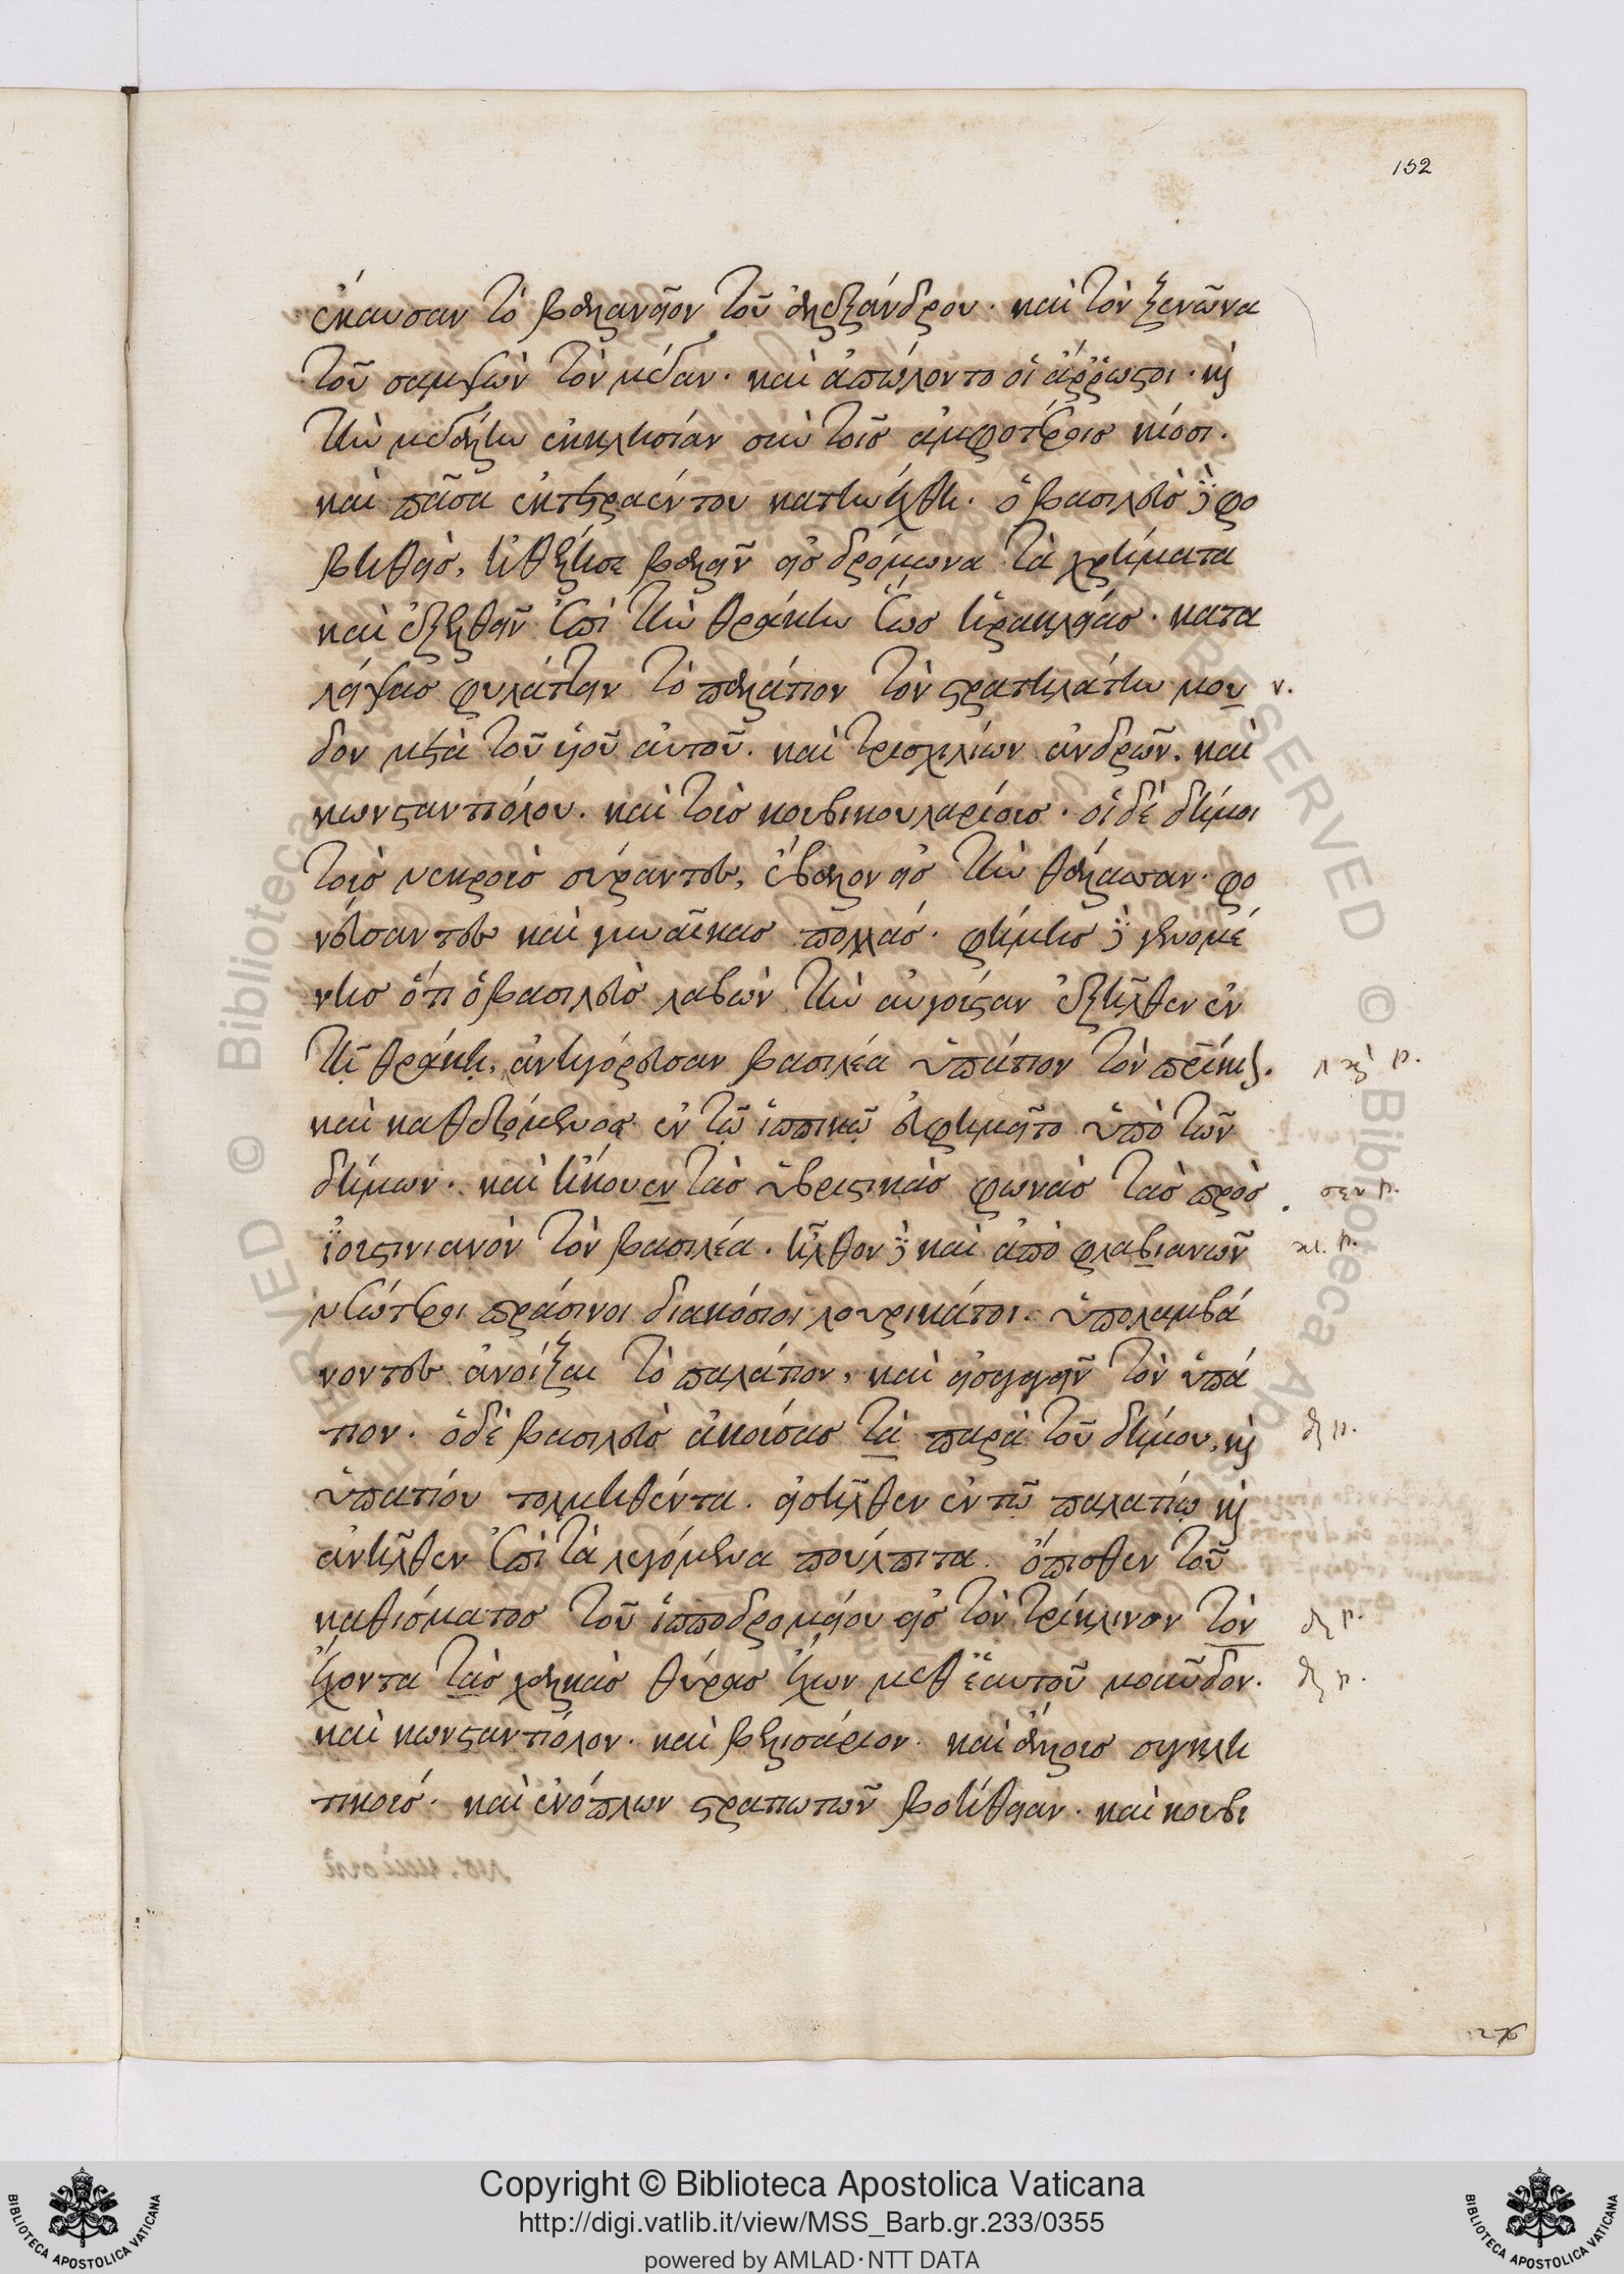 152
ἔκαυσαν τὸ βαλανεῖον τοῦ ἀλεξάνδρου. καὶ τὸν ξενῶνα
τοῦ σαμψὼν τὸν μέγαν. καὶ ἀπώλοντο οἱ ἄρρωστοι. κỳ
τὴν μεγάλην ἐκκλησίαν σὺν τοῖς ἀμφοτέροις κίοσι.
καὶ πᾶσα ἐκ τετραέντου κατηνέχθη. ὁ βασιλεὺς δὲ φο
βηθεὶς, ἠθέλησε βαλεῖν εἰς δρόμωνα τὰ χρήματα
καὶ ἐξελθεῖν ἐπὶ τὴν θράκην ἕως ἡρακλείας. κατα
λείψας φυλάττειν τὸ παλάτιον τὸν στρατηλάτην μου
δον μετὰ τοῦ υἱοῦ αὐτοῦ. καὶ τρισχιλίων ἀνδρῶν. καὶ
κωνσταντιόλου. καὶ τοὺς κουβικουλαρίους. οἱ δὲ δῆμοι
τοὺς νεκροὺς σύραντες, ἔβαλον εἰς τὴν θάλασσαν. φο
νεύσαντες καὶ γυναῖκας πολλάς. φήμης δὲ γενομέ
νης ὅτι ὁ βασιλεὺς λαβὼν τὴν αὐγούσταν ἐξῆλθεν ἐν
τῇ θράκῃ, ἀνηγόρευσαν βασιλέα ὑπάτιον τὸν πατρίκιον.
καὶ καθεζόμενος ἐν τῷ ἱππικῷ εὐφημεῖτο ὑπὸ τῶν
δήμων. καὶ ἤκουεν τὰς ὑβριστικὰς φωνὰς τὰς πρὸς
ἰουστινιανὸν τὸν βασιλέα. ἦλθον δὲ καὶ ἀπὸ φλαβιανῶν
νεώτεροι πράσινοι διακόσιοι λουρικάτοι. ὑπολαμβά
νοντες ἀνοίξαι τὸ παλάτιον, καὶ εἰσαγαγεῖν τὸν ὑπά
τιον. ὁ δὲ βασιλεὺς ἀκούσας τὰ παρὰ τοῦ δήμου, καὶ
ὑπατίου τολμηθέντα. εἰσῆλθεν ἐν τῷ παλατίῳ καὶ
ἀνῆλθεν ἐπὶ τὰ λεγόμενα πούλπιτα. ὄπισθεν τοῦ
καθίσματος τοῦ ἱπποδρομείου εἰς τὸν τρίκλινον τὸν
ἔχοντα τὰς χαλκὰς θύρας ἔχων μεθ ἑαυτοῦ μοῦνδον.
καὶ κωνσταντιόλον. καὶ βελισάριον. καὶ ἄλλους συγκλη
τικούς. καὶ ἐνόπλων στρατιωτῶν βοήθειαν. καὶ κουβι
Copyright © Biblioteca Apostolica Vaticana
http://digi.vatlib.it/view/MSS_Barb.gr.233/0355
powered by AMLAD·NTT DATA